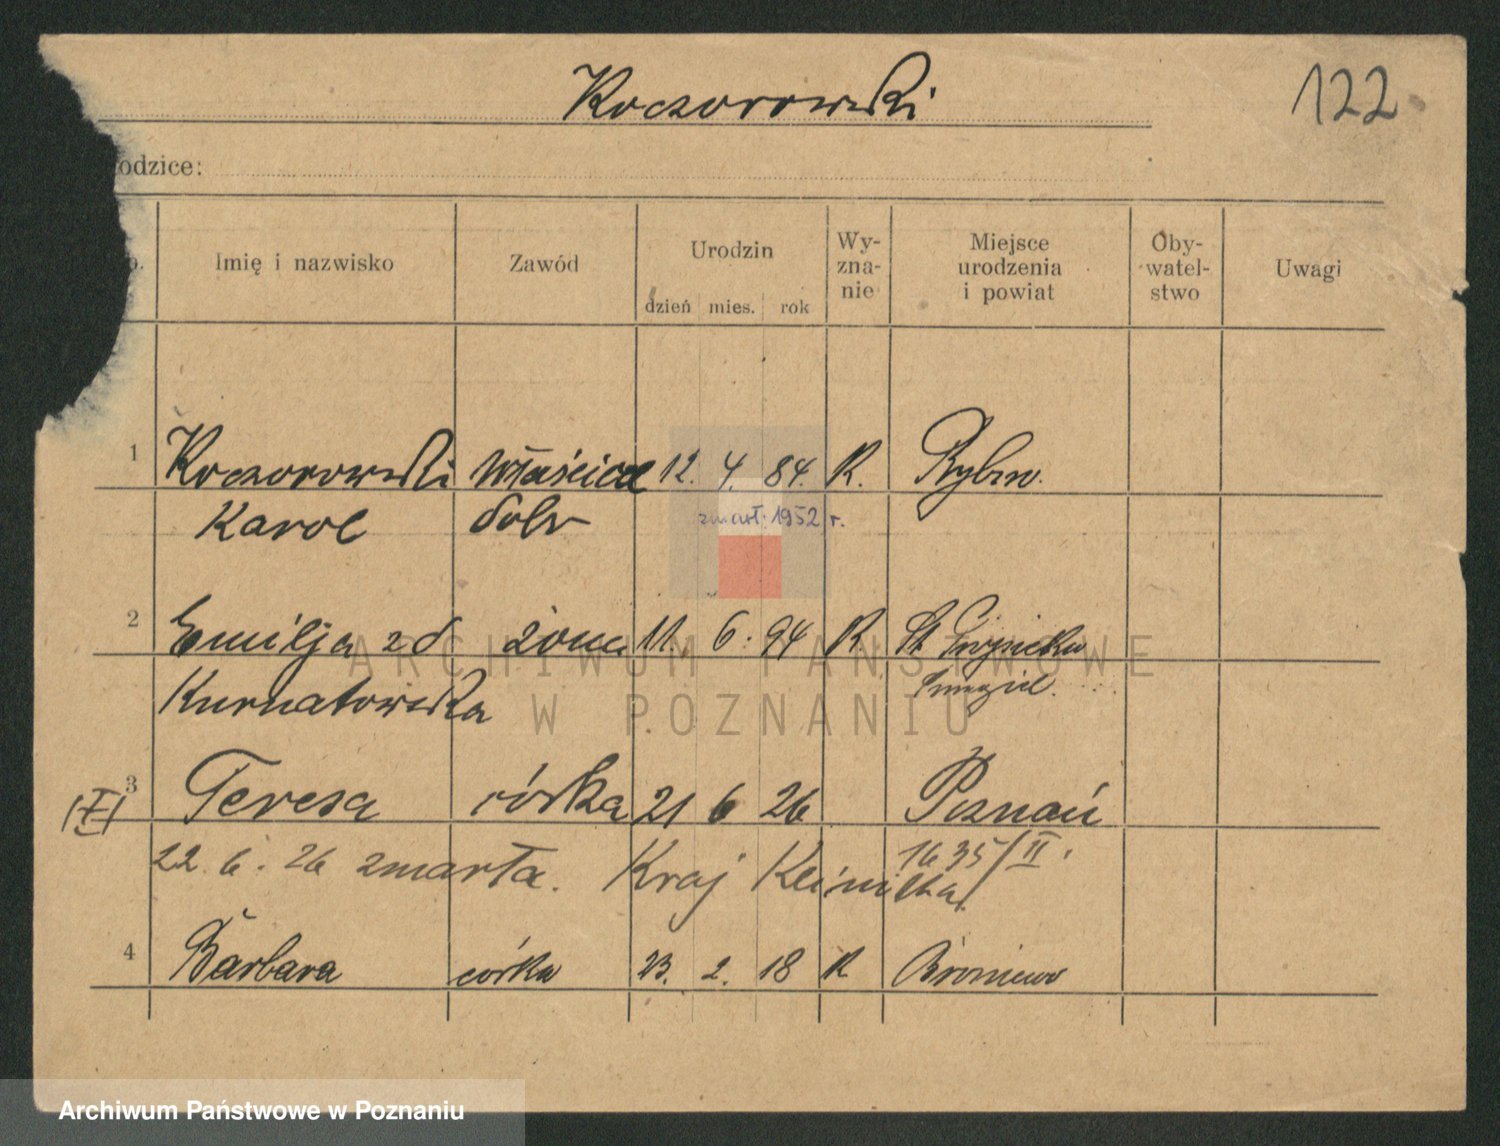 Koczorowski
122
odzice:
p. Imię i nazwisko Zawód Urodzin dzień mies. rok Wy-zna-nie Miejsce urodzenia i powiat Oby-watel-stwo Uwagi
1 Koczorowski właściciel 12. 4. 84. R.
Karol dóbr zmarł 1952 r.
2 Emilja z d żona 11. 6. 94 R.
Kurnatowska
3 Teresa córka 21 6 26 Poznań
22. 6. 26 zmarła. Kraj Klinika 1635/II.
4 Barbara córka 23. 2. 18 R Broniewo
ARCHIWUM PAŃSTWOWE
W POZNANIU
Archiwum Państwowe w Poznaniu